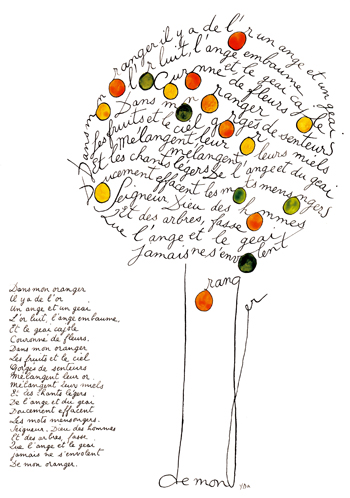 Dans mon oranger il y a de l'or un ange et un geai
l'or luit, l'ange embaume, et le geai cajole
Couronné de fleurs
Dans mon oranger
Les fruits et le ciel gorgés de senteurs
Mélangent leur
mélangent leurs miels
Et les chants légers De l'ange et du geai
Doucement effacent les mots mensongers
Seigneur Dieu des hommes
Et des arbres, fasse
Que l'ange et le geai
Jamais ne s'envolent
De mon
rang
er
Dans mon oranger
Il y a de l'or
Un ange et un geai
L'or luit, l'ange embaume,
Et le geai cajole
Couronné de fleurs.
Dans mon oranger
Les fruits et le ciel
Gorgés de senteurs
Mélangent leur or,
Mélangent leurs miels
Et les chants légers
De l'ange et du geai
Doucement effacent
Les mots mensongers.
Seigneur, Dieu des hommes
Et des arbres, fasse
Que l'ange et le geai
Jamais ne s'envolent
De mon oranger.